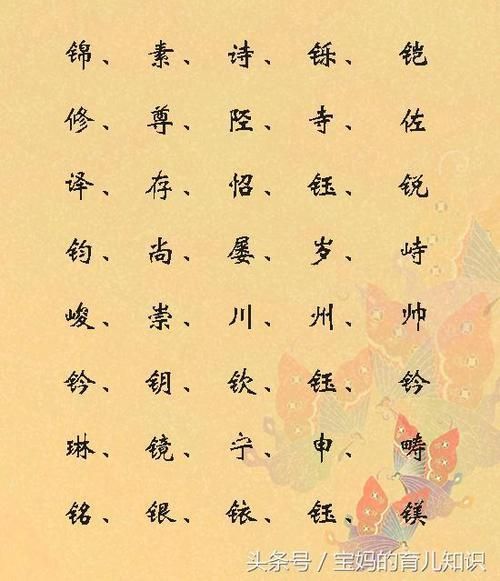 锦、素、诗、铄、铠
修、尊、陞、寺、佐
译、存、怊、钰、锐
钧、尚、屡、岁、峙
峻、崇、川、州、帅
钤、钥、钦、钰、钤
琳、镜、宁、申、畴
铭、银、铱、钰、镁
头条号／宝妈的育儿知识